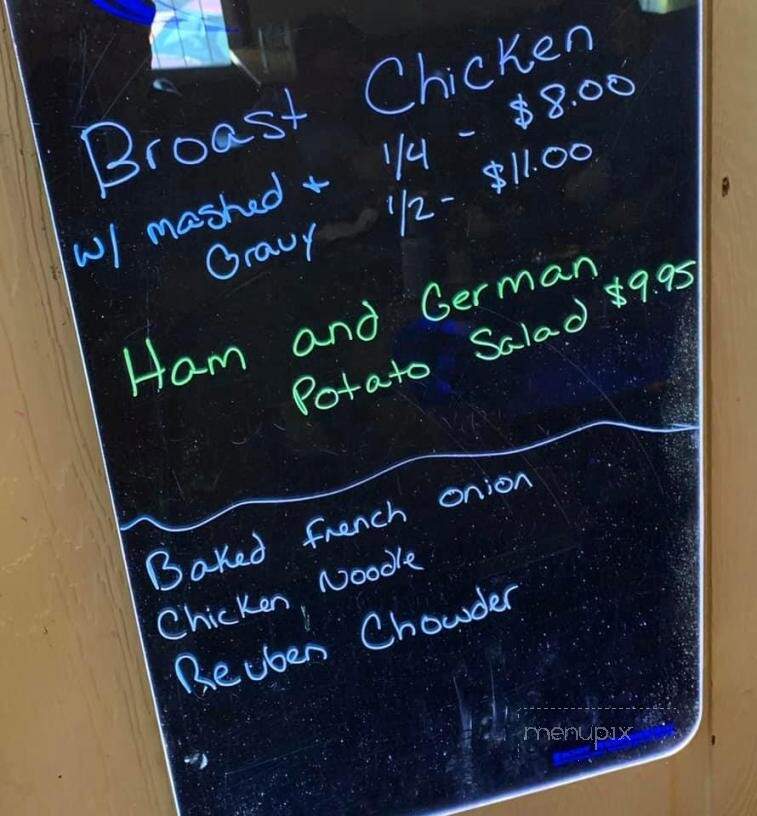 Broast Chicken
w/ mashed + 1/4 - $8.00
Gravy 1/2- $11.00
Ham and German
Potato Salad $9.95
Baked French onion
Chicken Noodle
Reuben Chowder
menupix